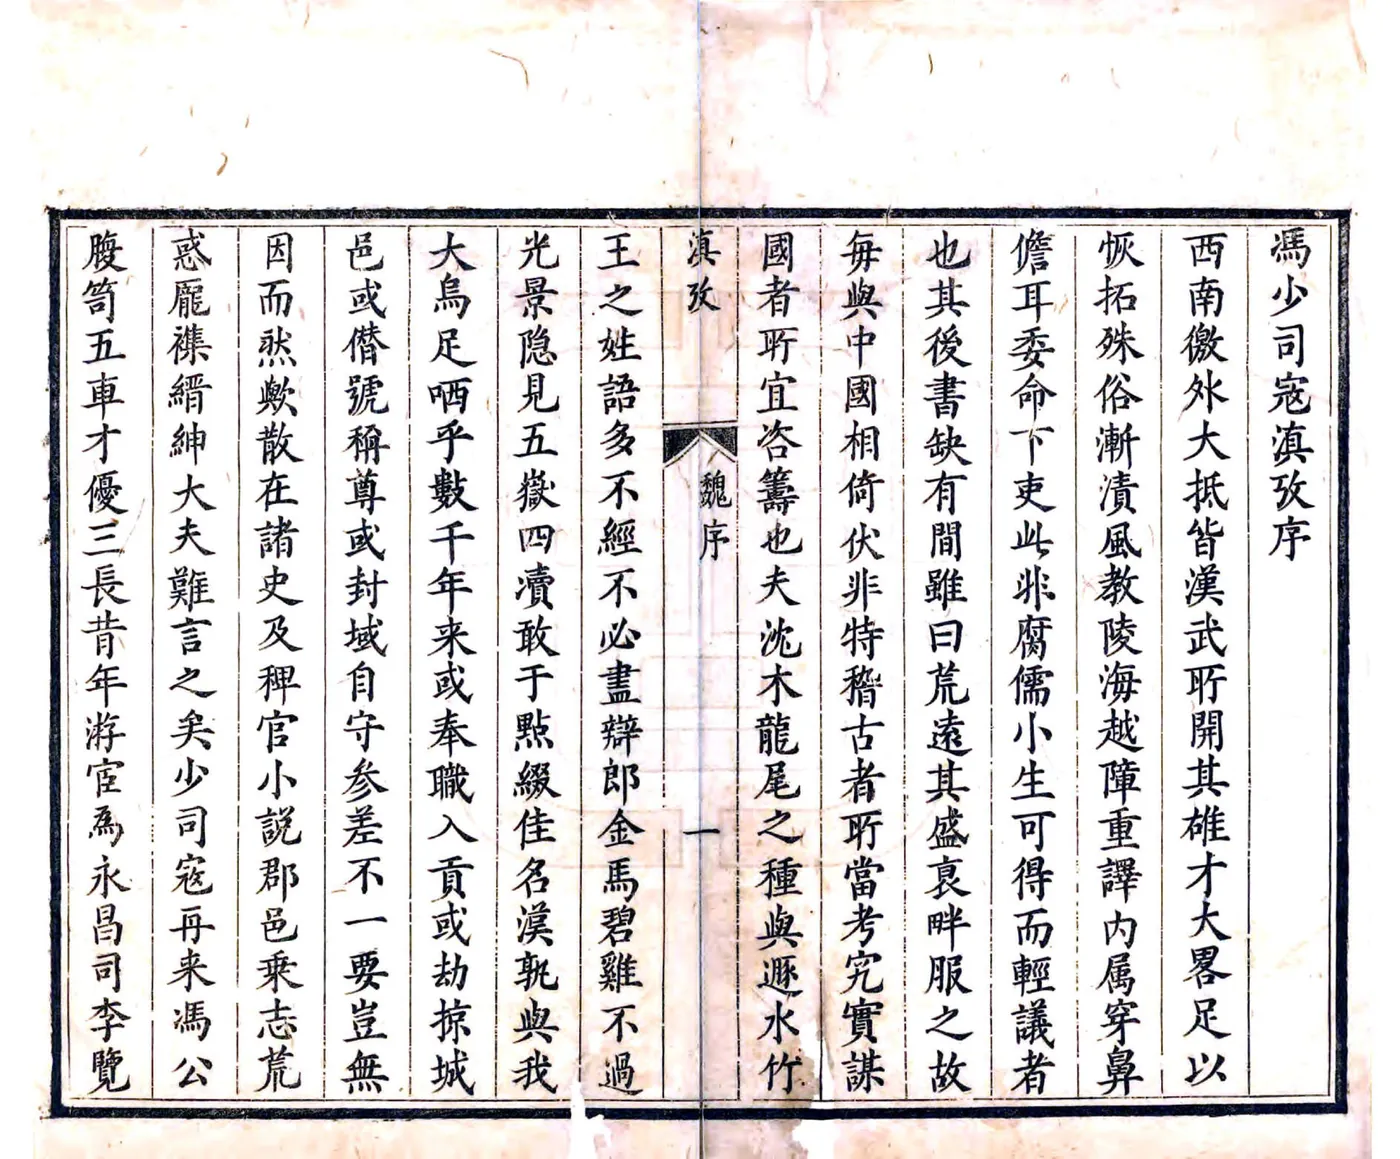 馮少司寇滇攷序
西南徼外大抵皆漢武所開其雄才大畧足以
恢拓殊俗漸漬風教陵海越障重譯内属穿鼻
儋耳委命下吏此非腐儒小生可得而輕議者
也其後書缺有間雖曰荒遠其盛衰畔服之故
每與中國相倚伏非特稽古者所當考究實謀
國者所宜咨籌也夫沈木龍尾之種與遯水竹
滇攷
魏序
一
王之姓語多不經不必盡辯郎金馬碧雞不過
光景隐見五嶽四瀆敢于點綴佳名漢孰與我
大烏足哂乎數千年来或奉職入貢或劫掠城
邑或僭號稱尊或封域自守参差不一要豈無
因而然歟散在諸史及稗官小說郡邑乘志荒
惑龐襍縉紳大夫難言之矣少司寇再来馮公
腹笥五車才優三長昔年游宦為永昌司李覽